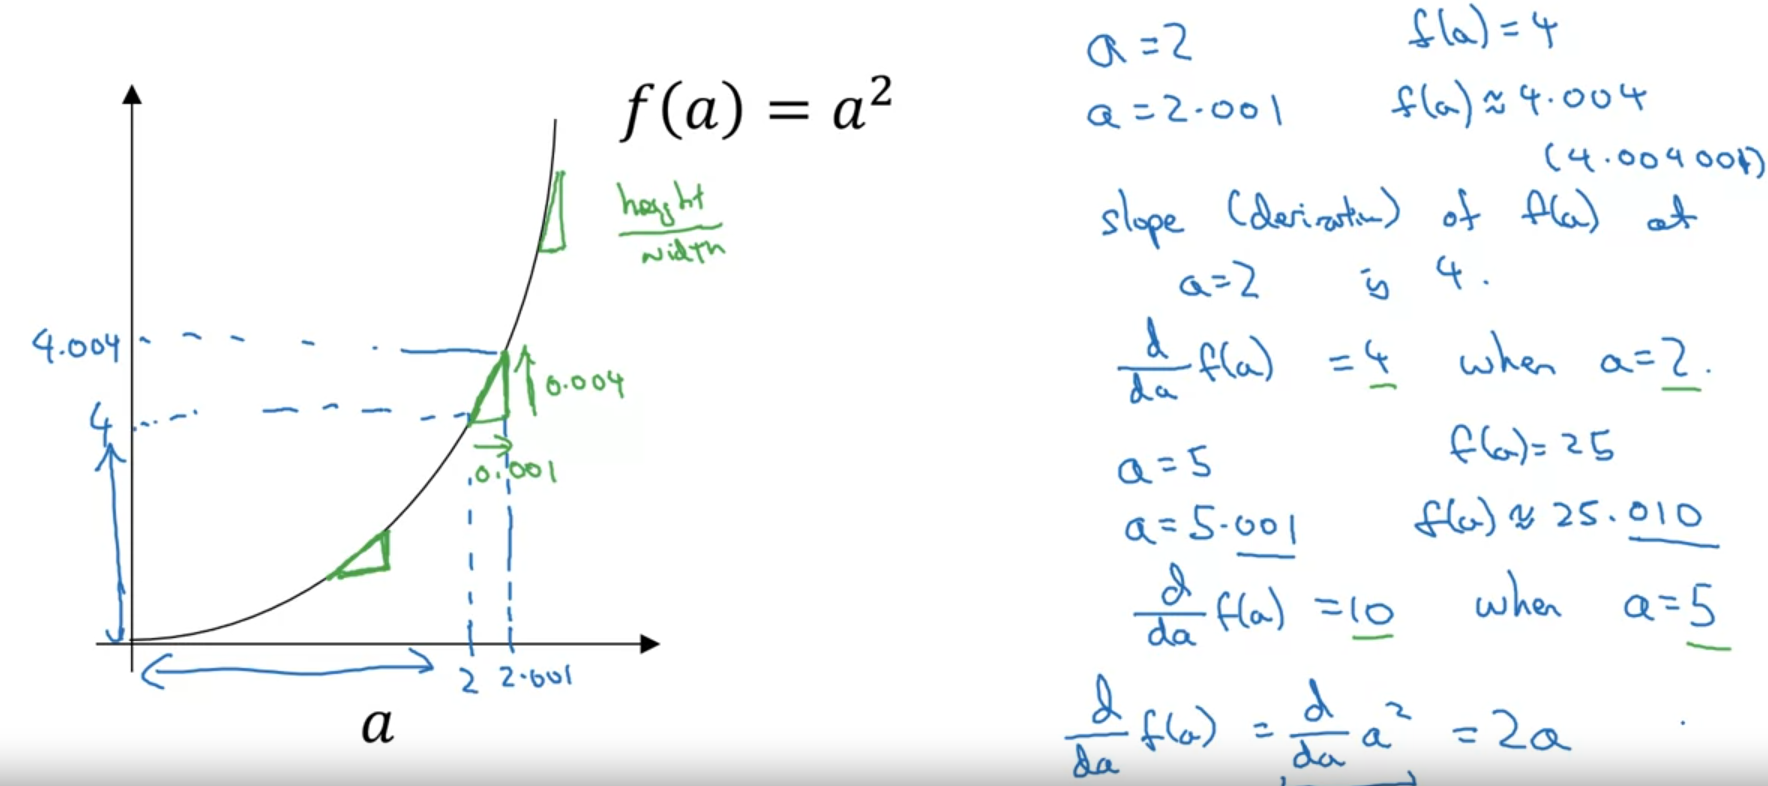 f(a) = a²
height
width
4.004
4
0.004
0.001
2 2.001
a
a=2 f(a)=4
a=2.001 f(a)≈4.004
(4.004001)
slope (derivative) of f(a) at
a=2 is 4.
d/da f(a) = 4 when a=2.
a=5 f(a)=25
a=5.001 f(a)≈25.010
d/da f(a) = 10 when a=5
d/da f(a) = d/da a² = 2a